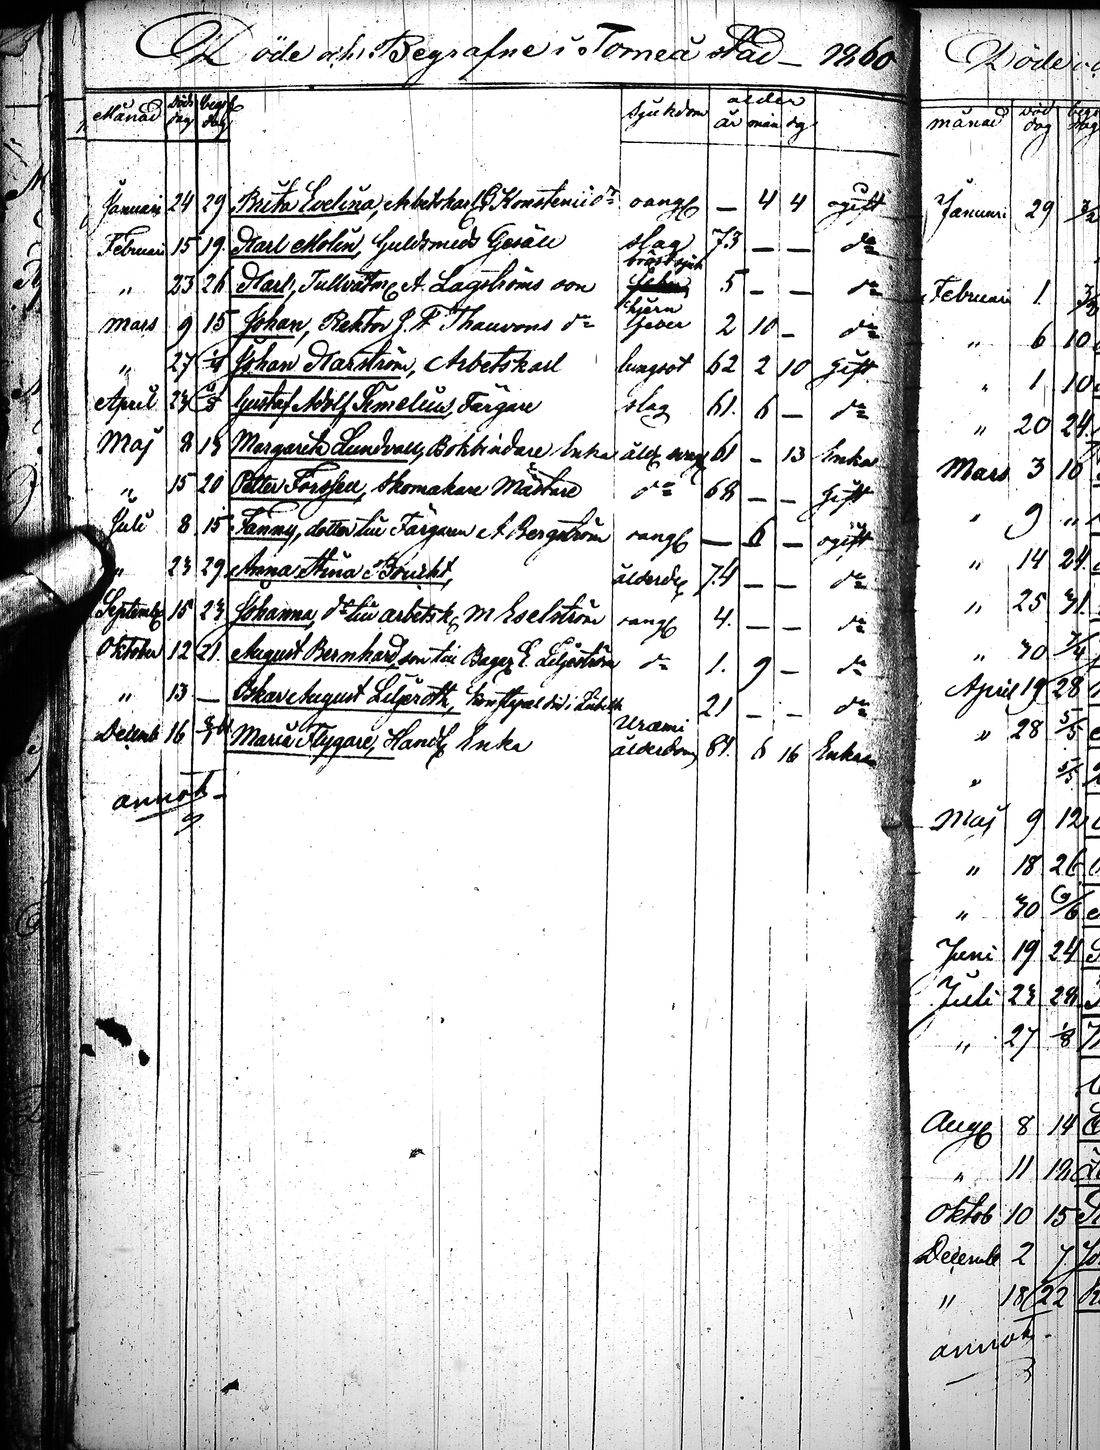 Döde och Begrafne i Torneå stad – 1860
Månad död dag begr. dag sjukdom ålder år mån dg
Januari 24 29 Brita Evelina, Arbetskarl Konstenii dr oangf – 4 4 ogift
Februari 15 19 Karl Molin, Guldsmeds Gesäll slag 73 – – do
„ 23 26 Karl, Tullvaktm A. Lagströms son bröstsjuk 5 – – do
Mars 9 15 Johan, Rektor J. F. Thauvons do hjern feber 2 10 – do
„ 27 Johan Harström, Arbetskarl lungsot 62 2 10 Gift
April 23 Gustaf Adolf Fimelius, Färgare slag 61. 6 – do
Maj 8 13 Margareta Lundvall, Bokbindare Enka 61 – 13 Enka
„ 15 20 Petter Forssell, Skomakare Mästare do 68 – – Gift
Juli 8 15 Fanny, dotter till Färgaren A Bergström oangf – 6 – ogift
„ 23 29 Anna Stina Bourht, ålderd 74 – – do
Septemb 15 23 Johanna, dr till arbetsk M Eselström oangf 4. – – do
Oktober 12 21. August Bernhard, son till Bagar E. Liljeström do 1. 9 – do
„ 13 – Oskar August Liljeroth, i Lübeck 21 – – do
Decemb 16 Maria Flygare, Handl Enka Uræmi ålderdom 81. 6 16 Enka
annot.
Döde
månad död dag begr dag
Januari 29
Februari 1.
„ 6 10
„ 1 10
„ 20 24
Mars 3 10
„ 9 „
„ 14 24
„ 25 31.
„ 30 7/4
April 19 28
„ 28 5/5
„ 5/5
Maj 9 12
„ 18 26
„ 30 9/6
Juni 19 24
Juli 23 28
„ 27 1/8
Aug 8 14
„ 11 12
Oktob 10 15
Decemb 2 7
„ 18 22
annot.